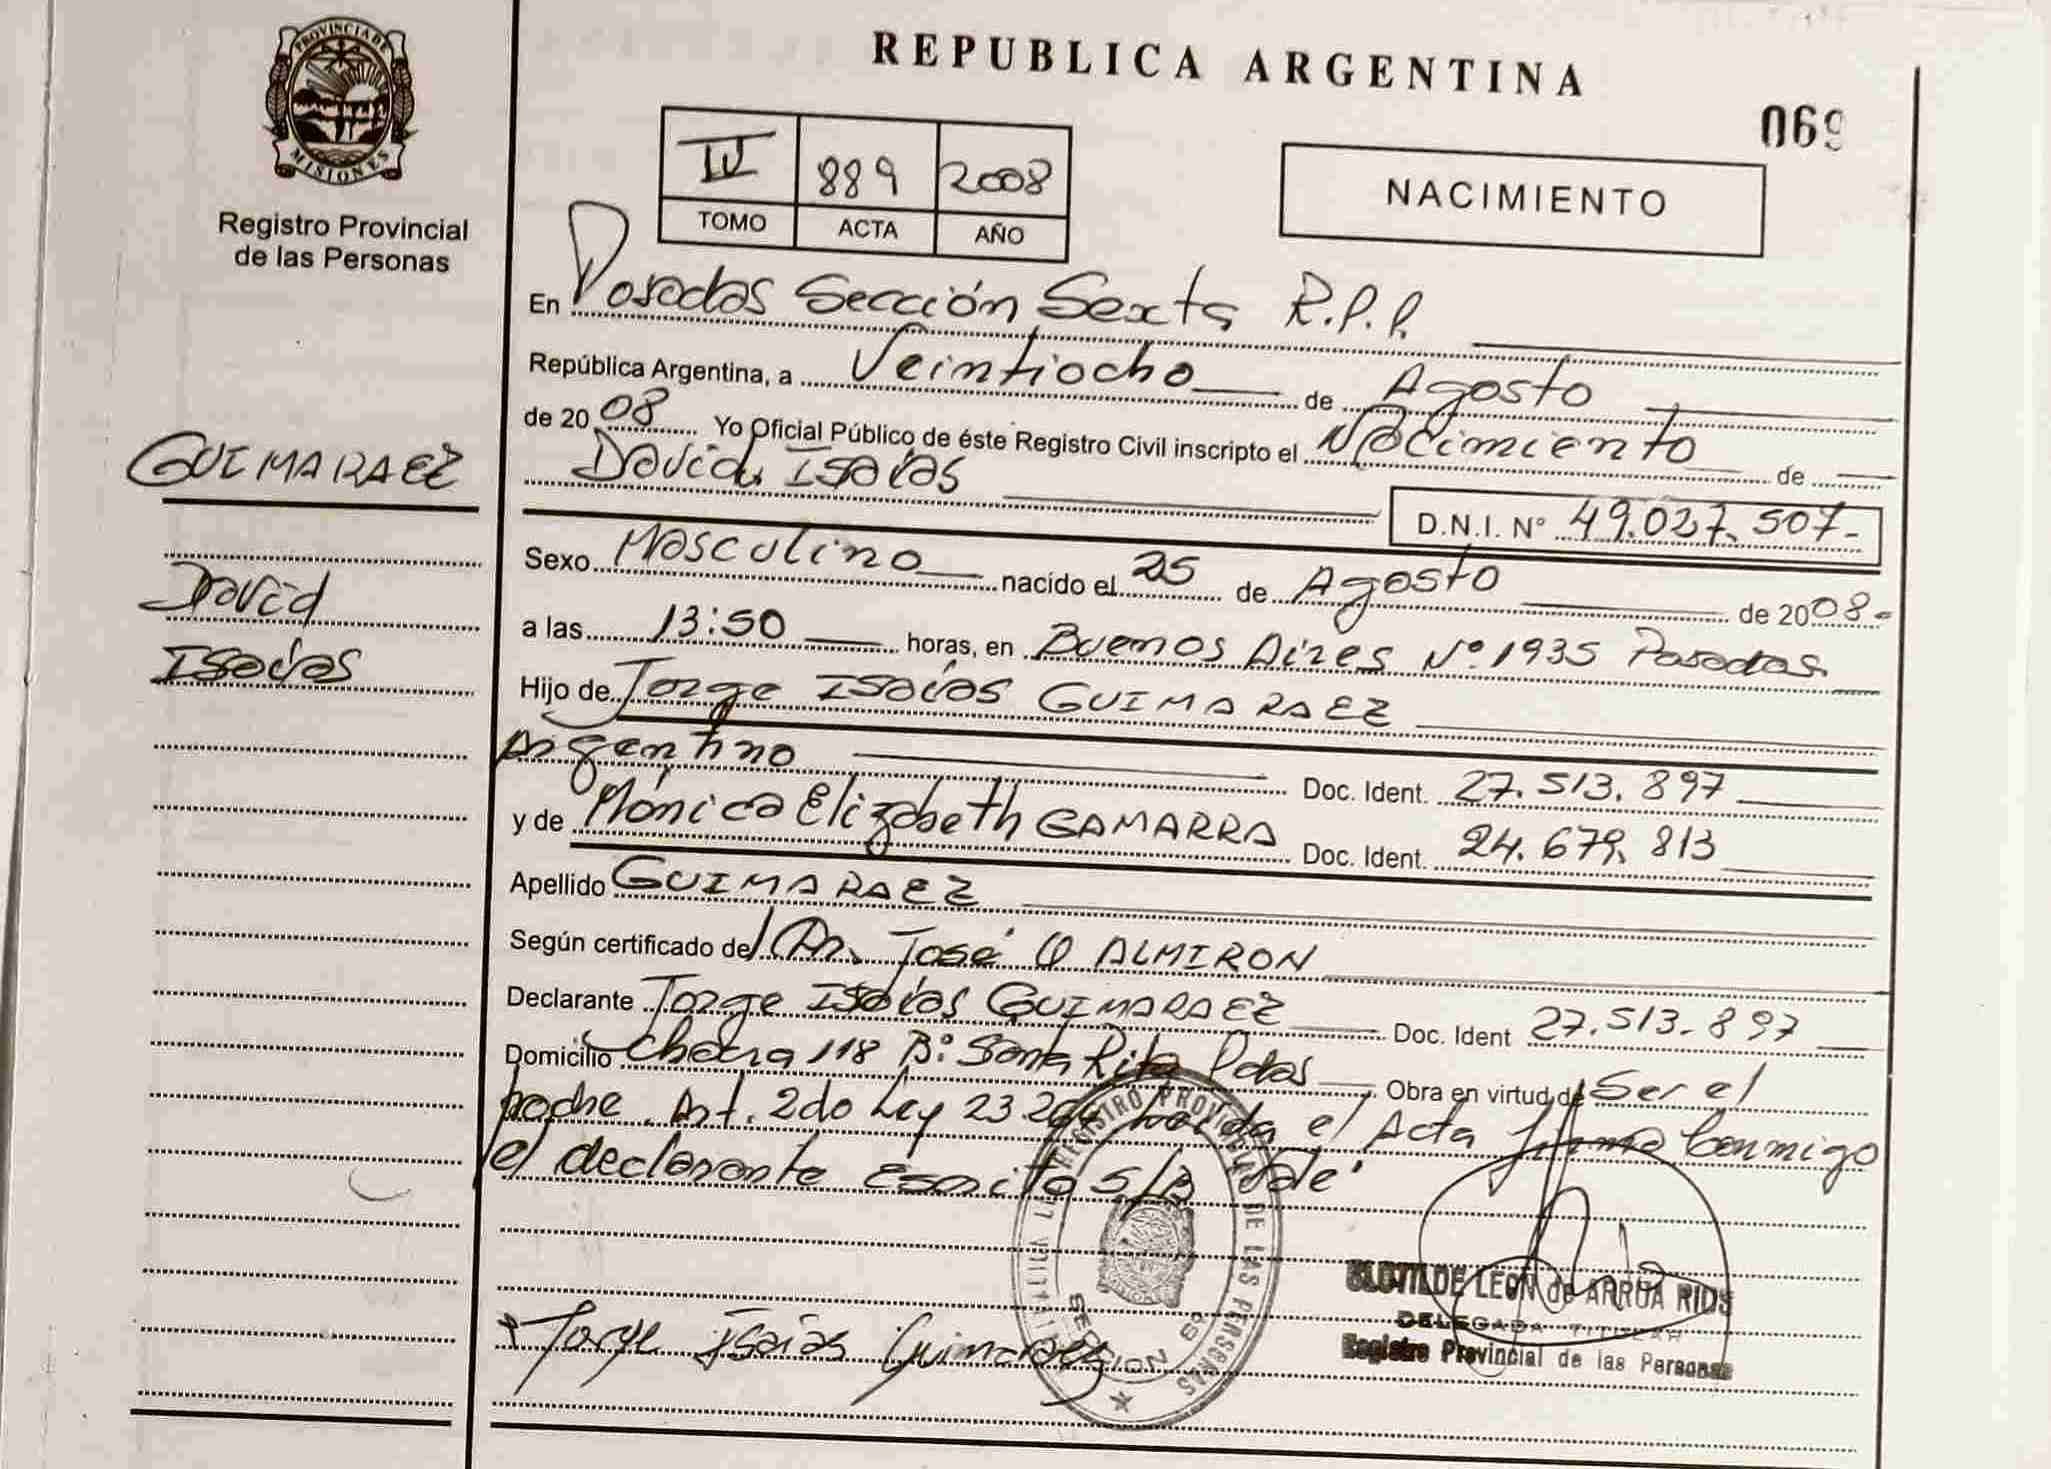 PROVINCIA DE
MISIONES
Registro Provincial
de las Personas
GUIMARAEZ
David
Isaías
REPUBLICA ARGENTINA
069
IV 889 2008
TOMO ACTA AÑO
NACIMIENTO
En Posadas Sección Sexta R.P.P.
República Argentina, a Veintiocho de Agosto
de 2008 Yo Oficial Público de éste Registro Civil inscripto el Nacimiento de
David Isaías
D.N.I. N° 49.027.507-
Sexo Masculino nacido el 25 de Agosto de 2008-
a las 13:50 horas, en Buenos Aires N°. 1935 Posadas
Hijo de Jorge Isaías GUIMARAEZ
Argentino Doc. Ident. 27.513.897
y de Mónica Elizabeth GAMARRA Doc. Ident. 24.679.813
Apellido GUIMARAEZ
Según certificado de José O ALMIRON
Declarante Jorge Isaías GUIMARAEZ Doc. Ident 27.513.897
Domicilio Chacra 118 B°. Santa Rita Pdas Obra en virtud de Ser el
padre. Art. 2do Ley 23.264 Leída el Acta firma Conmigo
el declarante Escrito S/B Vale
REGISTRO PROVINCIAL DE LAS PERSONAS
SECCION 6a
Jorge Isaías Guimaraez
CLOTILDE LEON de ARRUA RIOS
DELEGADA TITULAR
Registro Provincial de las Personas